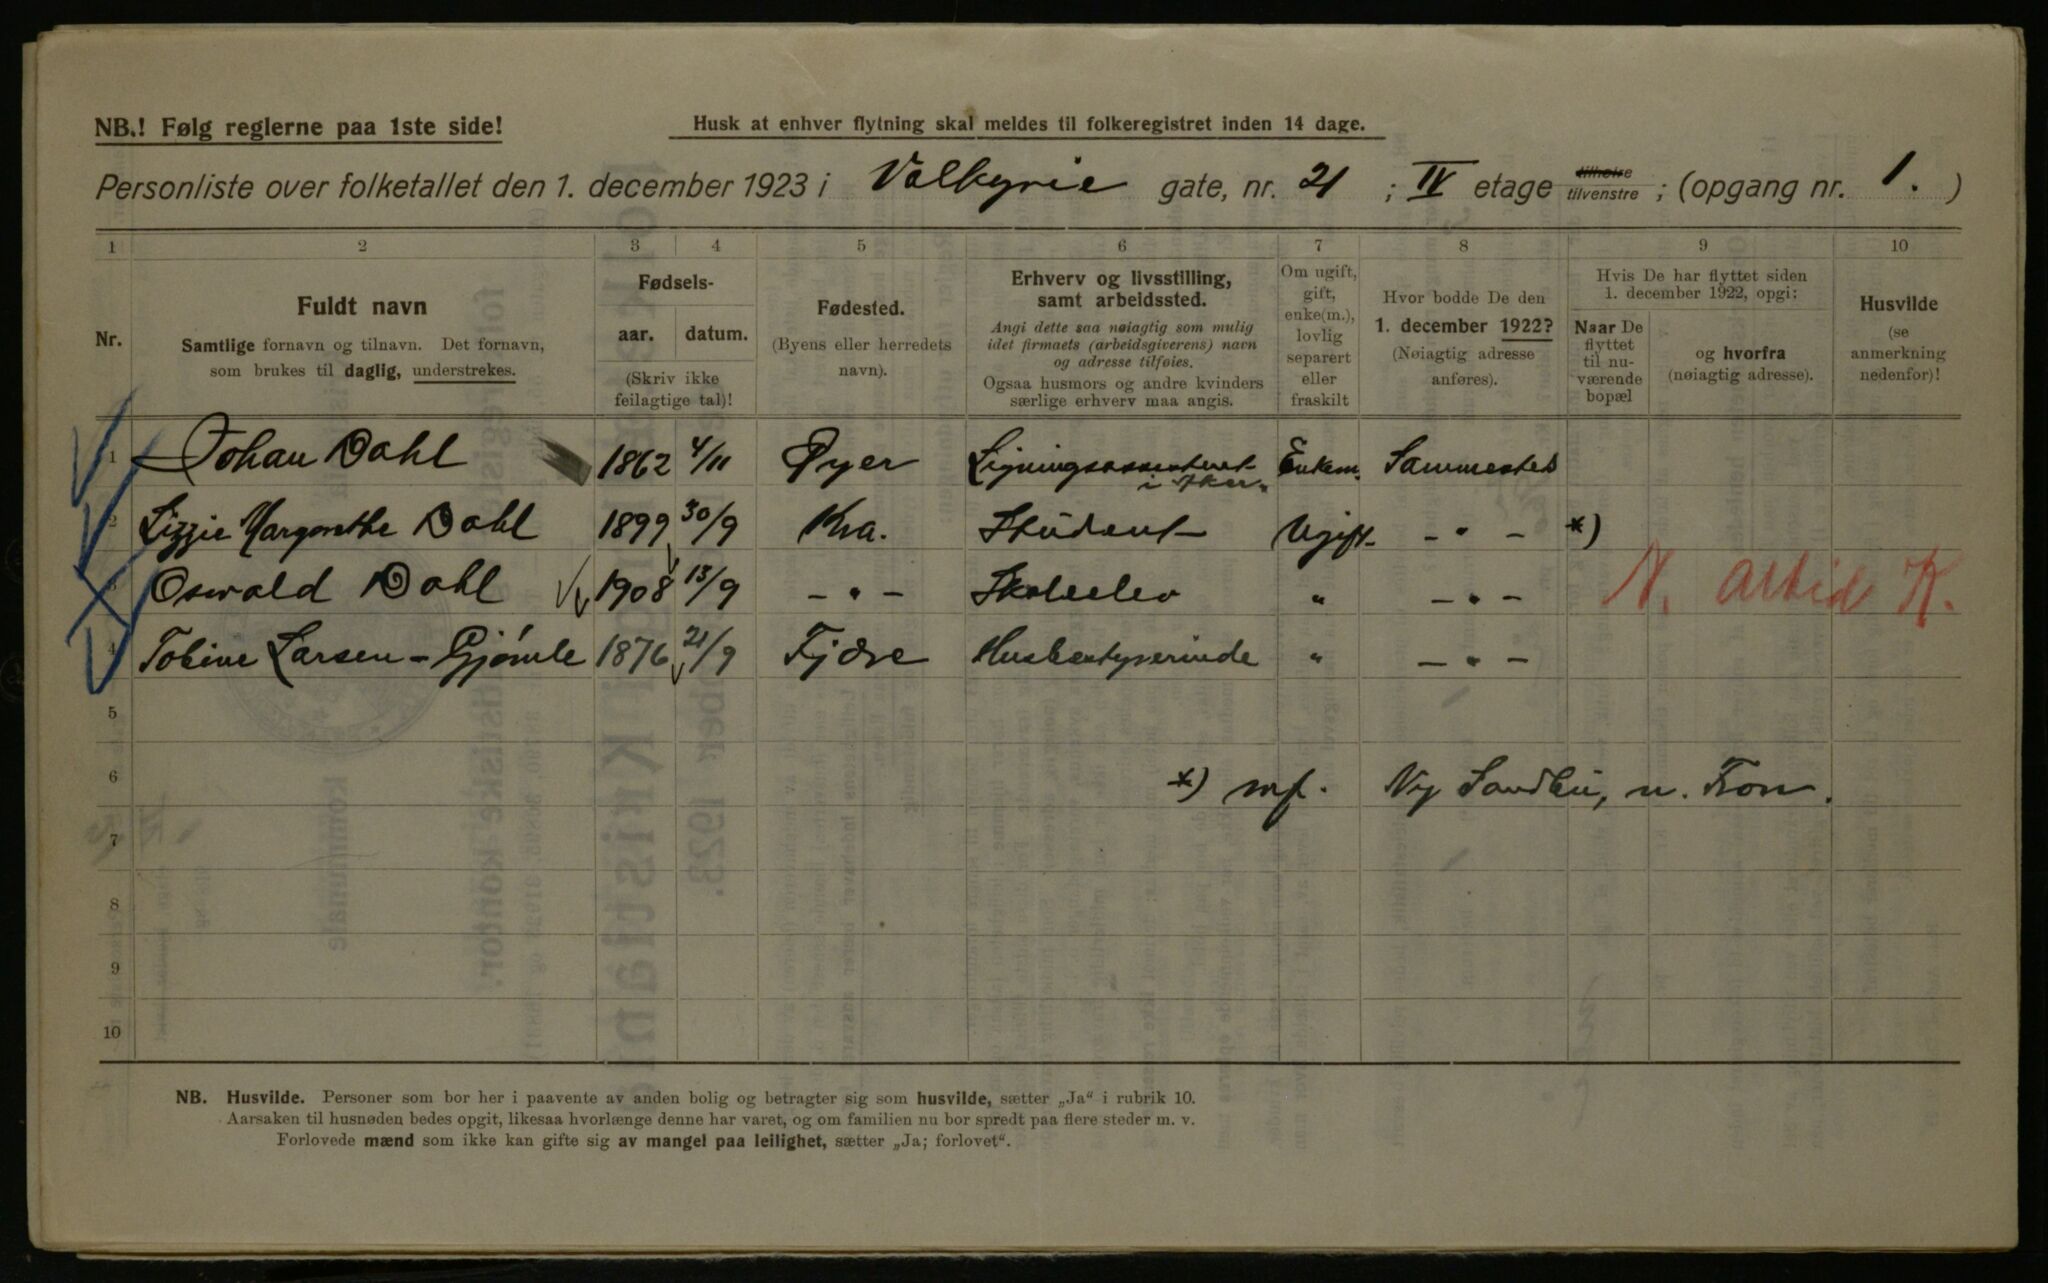 NB.! Følg reglerne paa 1ste side!
Husk at enhver flytning skal meldes til folkeregistret inden 14 dage.
Personliste over folketallet den 1. december 1923 i Valkyrie gate, nr. 21 ; IV etage tilhøire tilvenstre ; (opgang nr. 1. )
1 2 3 4 5 6 7 8 9 10
Nr.
Fuldt navn
Samtlige fornavn og tilnavn. Det fornavn,
som brukes til daglig, understrekes.
Fødsels-
aar. datum.
(Skriv ikke
feilagtige tal)!
Fødested.
(Byens eller herredets
navn).
Erhverv og livsstilling,
samt arbeidssted.
Angi dette saa nøiagtig som mulig
idet firmaets (arbeidsgiverens) navn
og adresse tilføies.
Ogsaa husmors og andre kvinders
særlige erhverv maa angis.
Om ugift,
gift,
enke(m.),
lovlig
separert
eller
fraskilt
Hvor bodde De den
1. december 1922?
(Nøiagtig adresse
anføres).
Hvis De har flyttet siden
1. december 1922, opgi:
Naar De
flyttet
til nu-
værende
bopæl
og hvorfra
(nøiagtig adresse).
Husvilde
(se
anmerkning
nedenfor)!
1 Johan Dahl 1862 4/11 Øyer Ligningsassistent Enkem. Sammested
i Aker.
2 Lizzie Margrethe Dahl 1899 30/9 Kra. Student Ugift - " - *)
3 Oswald Dahl 1908 13/9 - " - Skoleelev " - " - N. arbeid K.
4 Tobine Larsen-Gjømle 1876 21/9 Fjære Husbestyrerinde " - " -
5
6 *) mf. Ny Sandbu, n. Fron.
7
8
9
10
NB. Husvilde. Personer som bor her i paavente av anden bolig og betragter sig som husvilde, sætter „Ja“ i rubrik 10.
Aarsaken til husnøden bedes opgit, likesaa hvorlænge denne har varet, og om familien nu bor spredt paa flere steder m. v.
Forlovede mænd som ikke kan gifte sig av mangel paa leilighet, sætter „Ja; forlovet“.